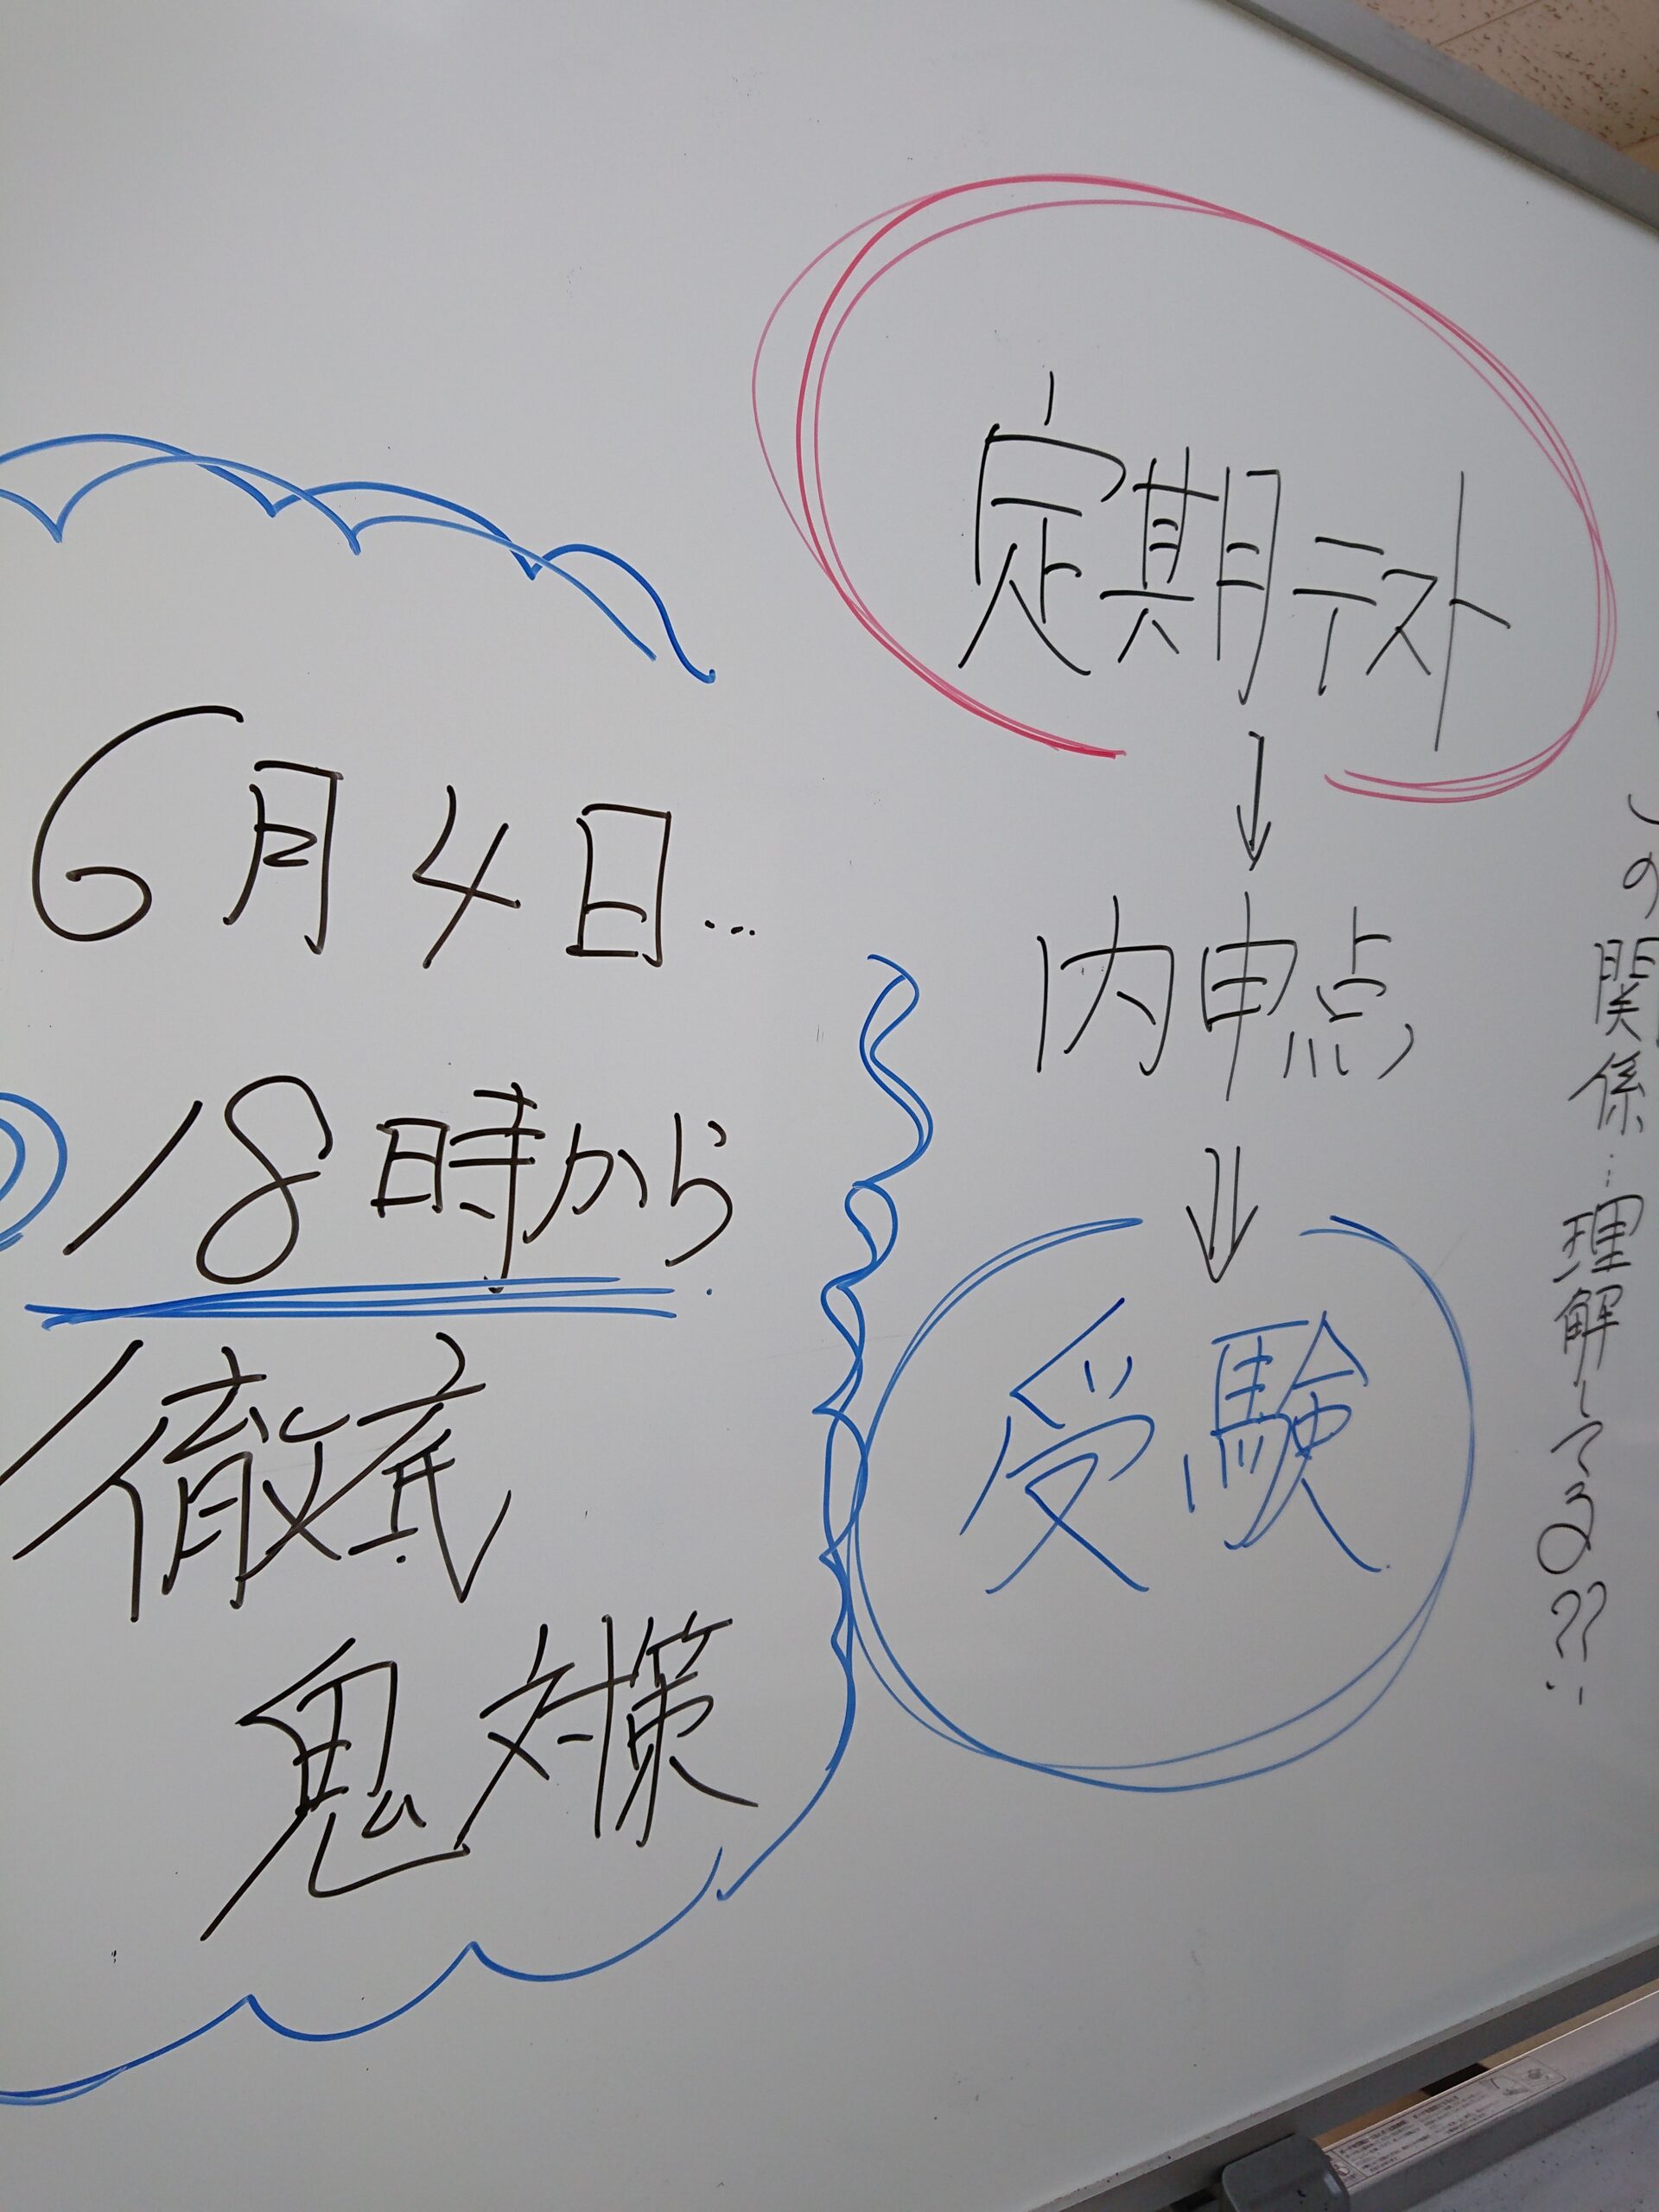 この関係…理解してる??
定期テスト
↓
内申点
⇓
受験
6月4日…
18時から
徹底
鬼対策